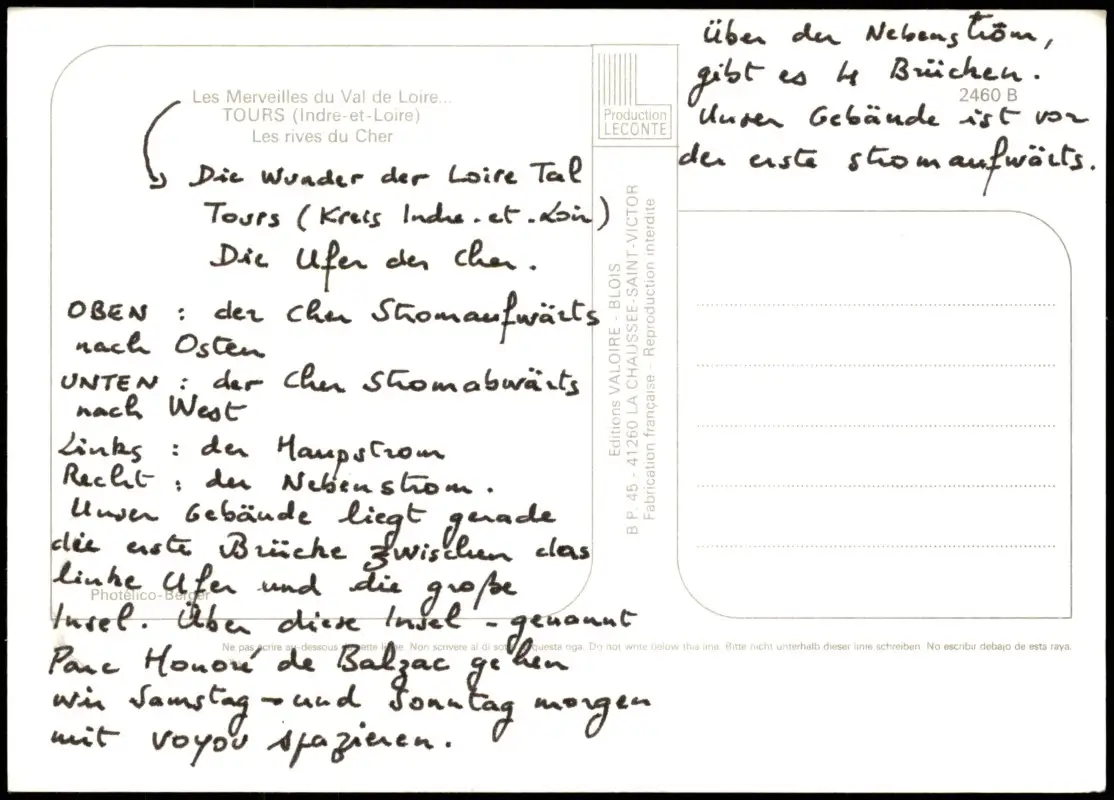 Les Merveilles du Val de Loire...
TOURS (Indre-et-Loire)
Les rives du Cher
Die Wunder der Loire Tal
Tours (Kreis Indre-et-Loir)
Die Ufer der Cher.
OBEN : der Cher Stromaufwärts
nach Osten
UNTEN : der Cher Stromabwärts
nach West
Links : der Haupstrom
Recht : der Nebenstrom.
Unser Gebäude liegt gerade
die erste Brücke zwischen das
linke Ufer und die große
Insel. Über diese Insel - genannt
Parc Honoré de Balzac gehen
wir Samstag - und Sonntag morgen
mit voyou spazieren.
Photélico-Berger
Production
LECONTE
Editions VALOIRE - BLOIS
B.P. 45 - 41260 LA CHAUSSÉE-SAINT-VICTOR
Fabrication française - Reproduction interdite
Über der Nebenström,
gibt es 4 Brücken.
2460 B
Unser Gebäude ist vor
der erste stromaufwärts.
Ne pas écrire au-dessous de cette ligne. Non scrivere al di sotto di questa riga. Do not write below this line. Bitte nicht unterhalb dieser linie schreiben. No escribir debajo de esta raya.